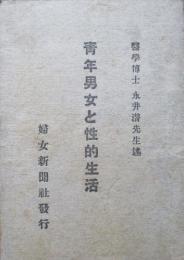 醫學博士 永井潛先生述
青年男女と性的生活
婦女新聞社發行